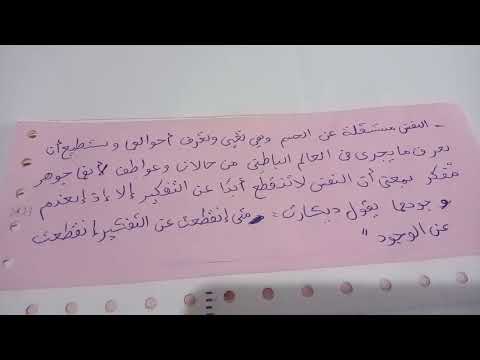 - النفس مستقلة عن الجسم وهي تعي وتعرف أحوالها وتستطيع أن
تعرف ما يجري في العالم الباطني من حالات وعواطف لأنها جوهر
مفكر بمعنى أن النفس لا تنقطع أبدًا عن التفكير إلا إذا إنعدم
وجودها يقول ديكارت: "متى إنقطعت عن التفكير إنقطعت
عن الوجود"